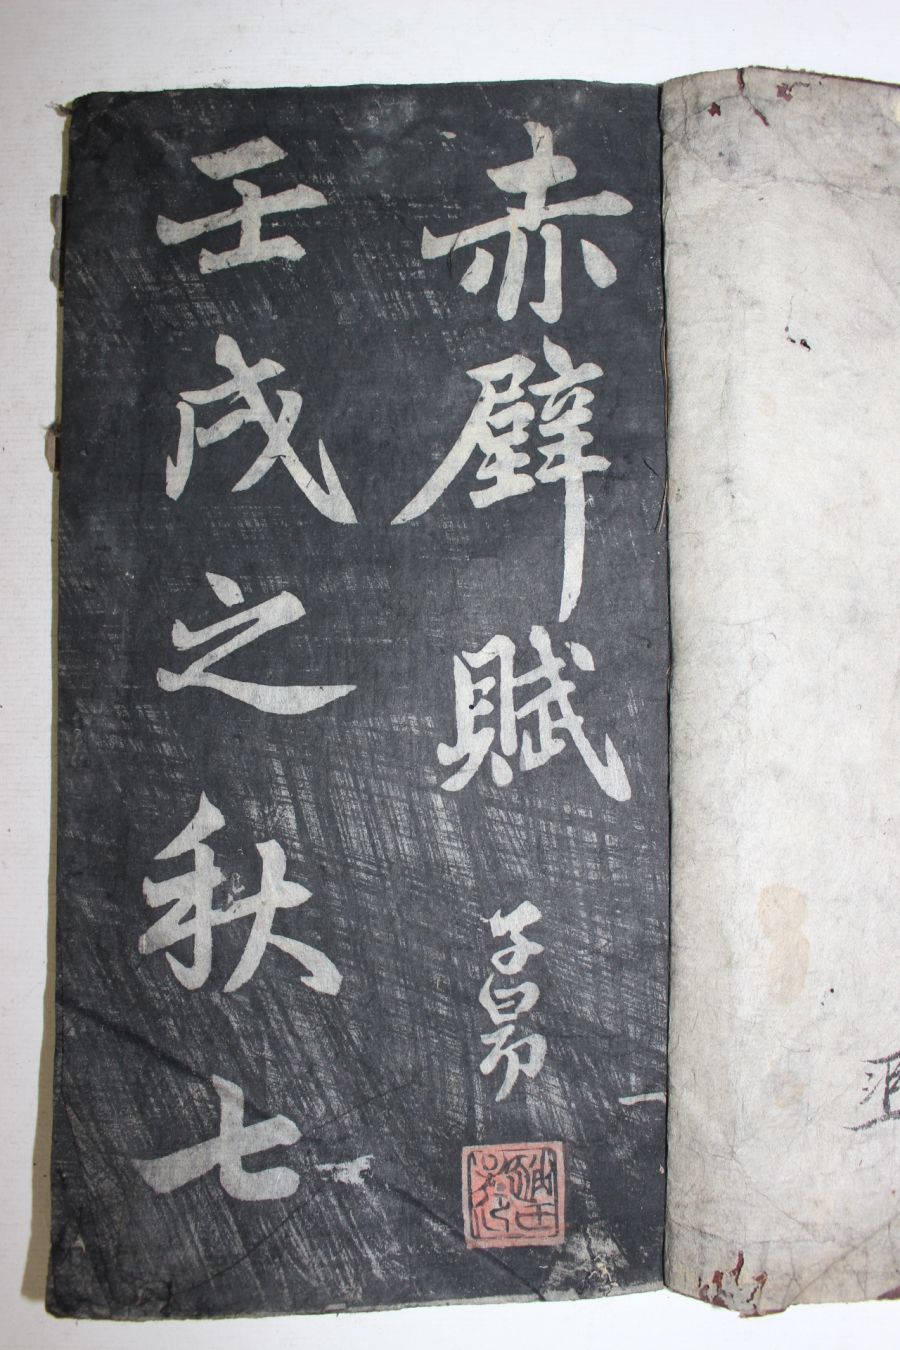 赤壁賦
子昂
一
壬戌之秋七